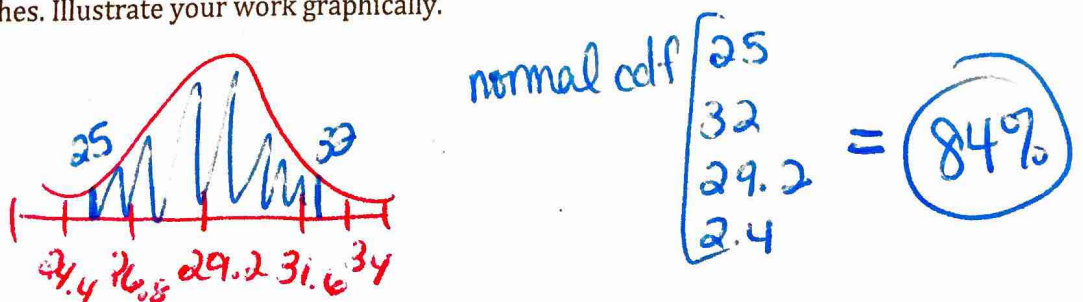 hes. Illustrate your work graphically.
25
32
24.4 26.8 29.2 31.6 34
normal cdf
25
32
29.2
2.4
= 84%